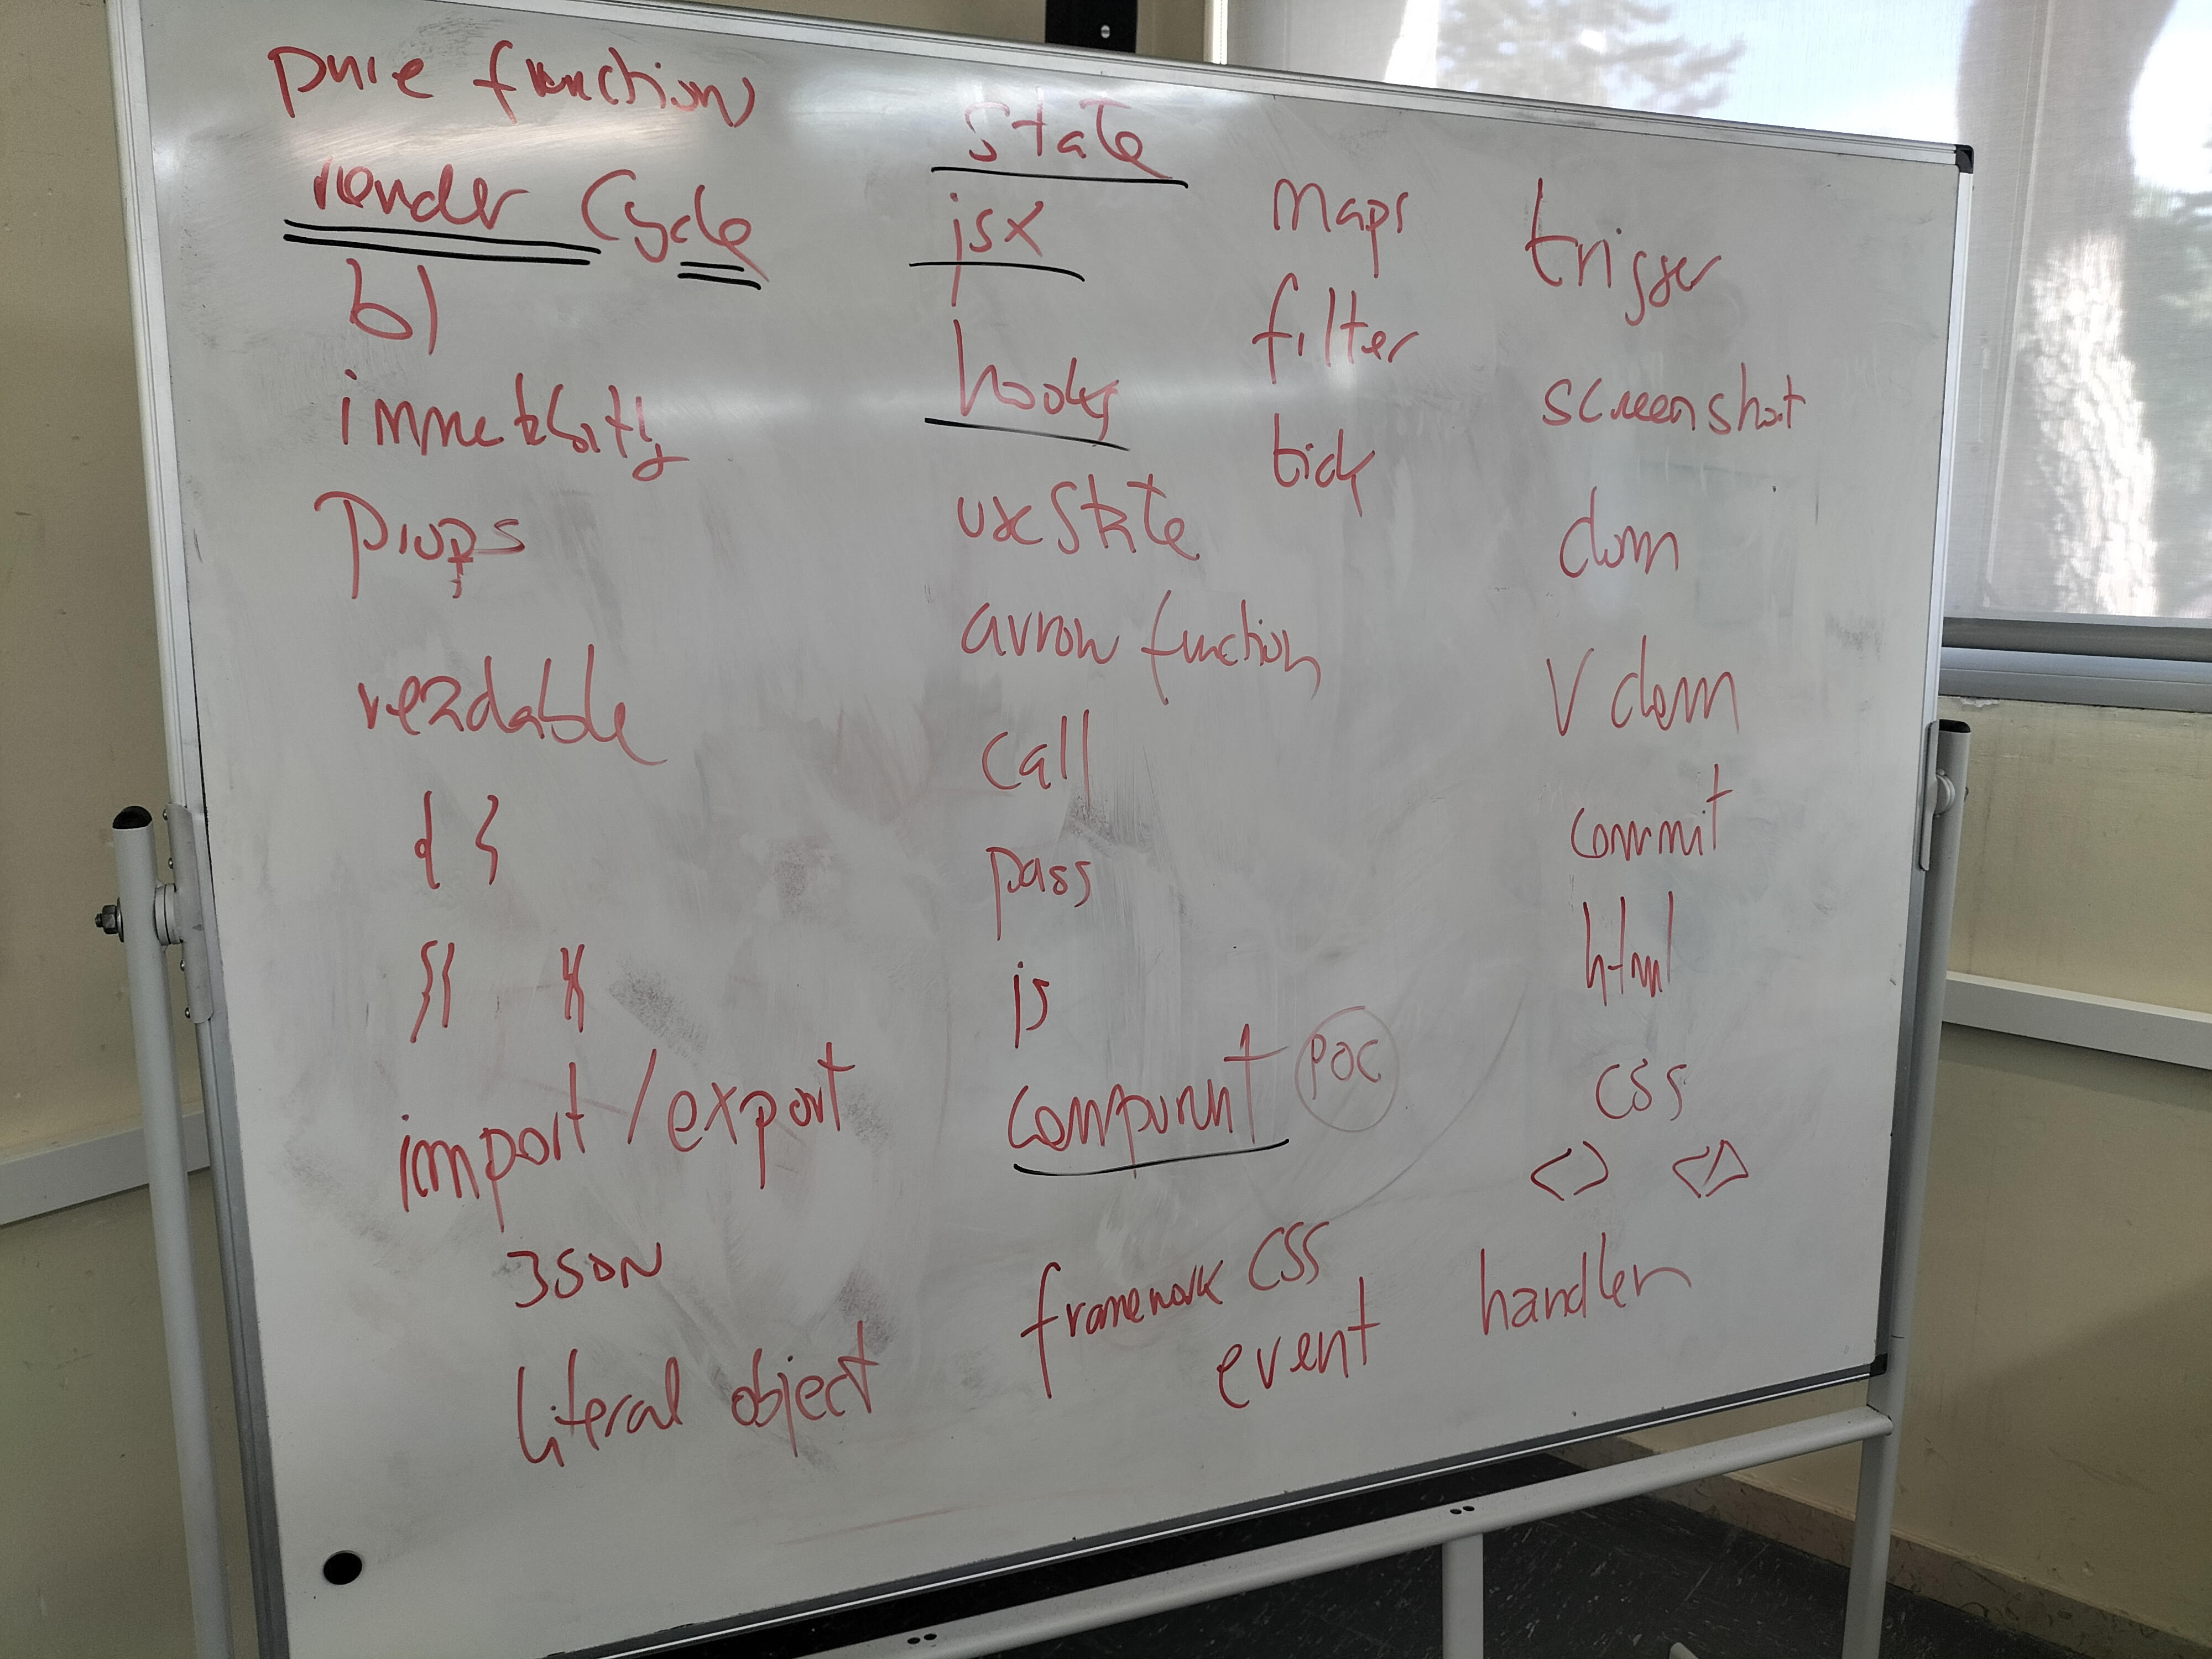 pure function
render cycle
b)
immutability
props
readable
{ }
{{ }}
import / export
JSON
literal object
state
jsx
hooks
useState
arrow function
call
pass
js
component POC
framework CSS
event handler
maps
filter
tick
trigger
screenshot
dom
V dom
commit
html
css
<> </>